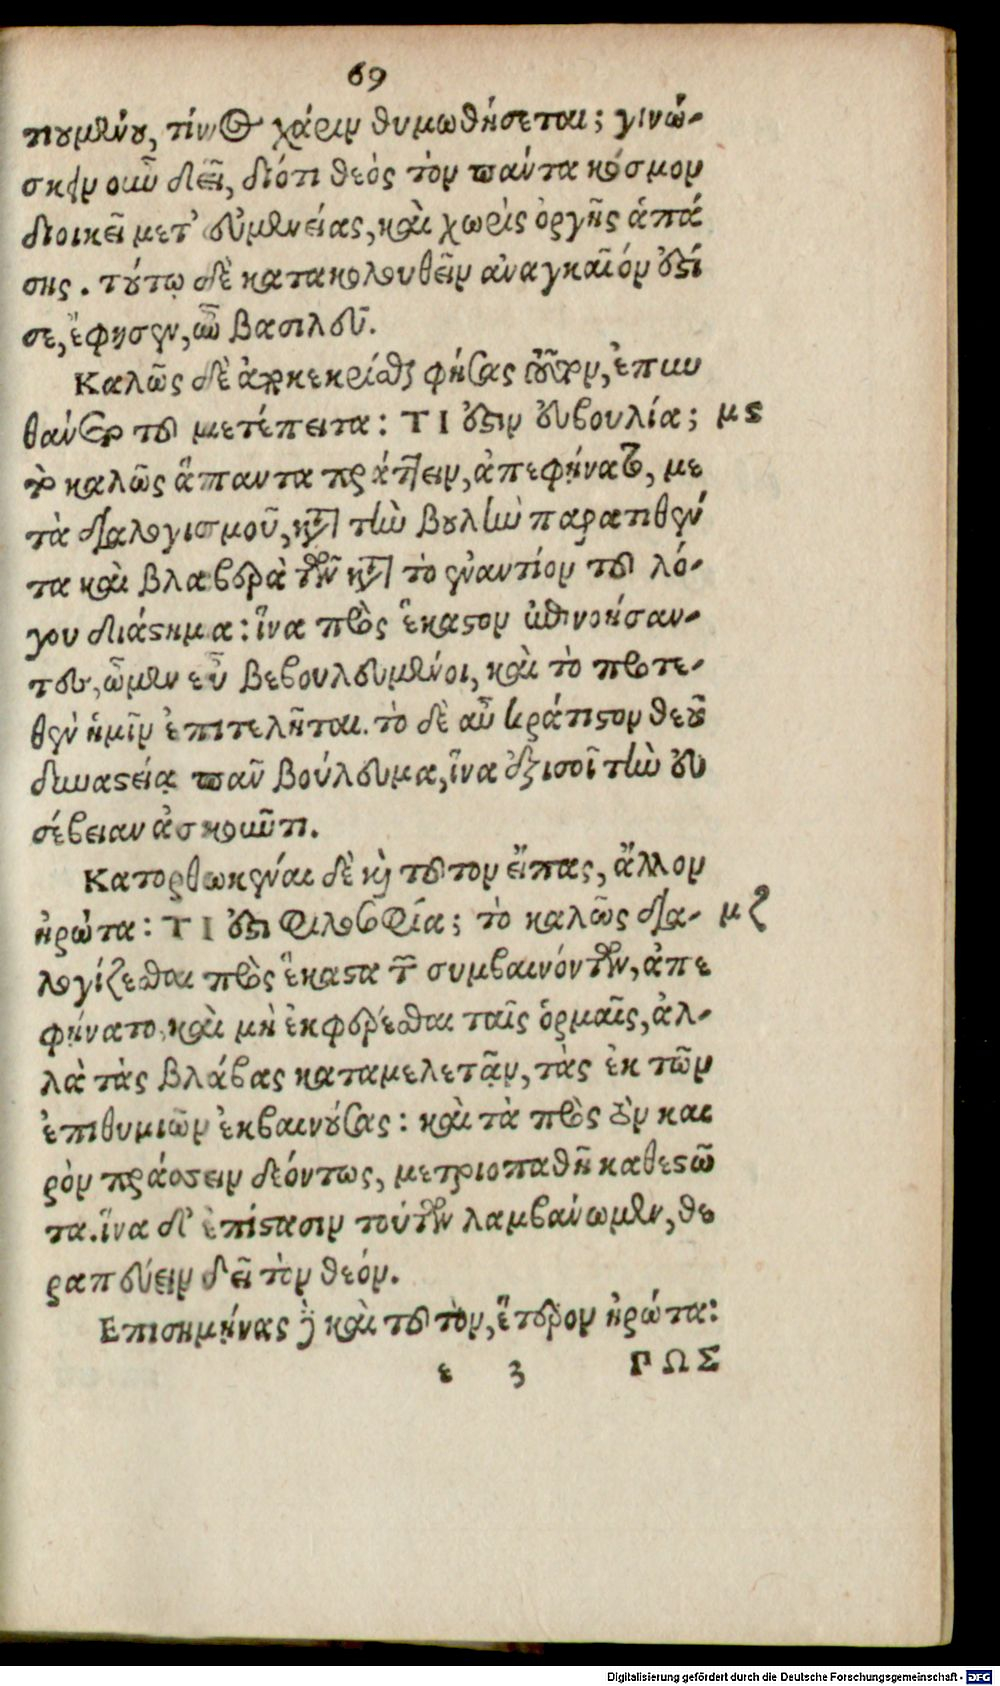 69
τιουμένου, τίνος χάριν θυμωθήσεται; γινώ-
σκειν οὖν δεῖ, διότι θεὸς τὸν πάντα κόσμον
διοικεῖ μετ' εὐμενείας, καὶ χωρὶς ὀργῆς ἁπά
σης. τούτῳ δὲ κατακολουθεῖν ἀναγκαῖόν ἐστί
σε, ἔφησεν, ὦ βασιλεῦ.
Καλῶς δὲ ἀποκεκρίσθαι φήσας τοῦτον, ἐπυν
θάνετο τοῦ μετέπειτα: ΤΙ ἐστιν εὐβουλία; μϛ
τὸ καλῶς ἅπαντα πράττειν, ἀπεφήνατο, με
τὰ διαλογισμοῦ, κατὰ τὴν βουλὴν παρατιθέν
τα καὶ βλαβερὰ τῶν κατὰ τὸ ἐναντίον τοῦ λό-
γου διάστημα: ἵνα πρὸς ἕκαστον ἐπινοήσαν-
τες, ὦμεν εὖ βεβουλευμένοι, καὶ τὸ προτε-
θὲν ἡμῖν ἐπιτελῆται. τὸ δὲ αὖ κράτιστον θεοῦ
δυναστείᾳ πᾶν βούλευμα, ἵνα ἐξισοῖ τὴν εὐ
σέβειαν ἀσκοῦντι.
Κατορθωκέναι δὲ καὶ τοῦτον εἴπας, ἄλλον
ἠρώτα: ΤΙ ἐστι φιλοσοφία; τὸ καλῶς δια- μζ
λογίζεσθαι πρὸς ἕκαστα τῶν συμβαινόντων, ἀπε
φήνατο, καὶ μὴ ἐκφέρεσθαι ταῖς ὁρμαῖς, ἀλ-
λὰ τὰς βλάβας καταμελετᾷν, τὰς ἐκ τῶν
ἐπιθυμιῶν ἐκβαινούσας: καὶ τὰ πρὸς τὸν και
ρὸν πράσσειν δεόντως, μετριοπαθῆ καθεστῶ
τα. ἵνα δ' ἐπίστασιν τούτων λαμβάνωμεν, θε
ραπεύειν δεῖ τὸν θεόν.
Επισημήνας δὲ καὶ τοῦτον, ἕτερον ἠρώτα:
ε 3 ΠΩΣ
Digitalisierung gefördert durch die Deutsche Forschungsgemeinschaft - DFG